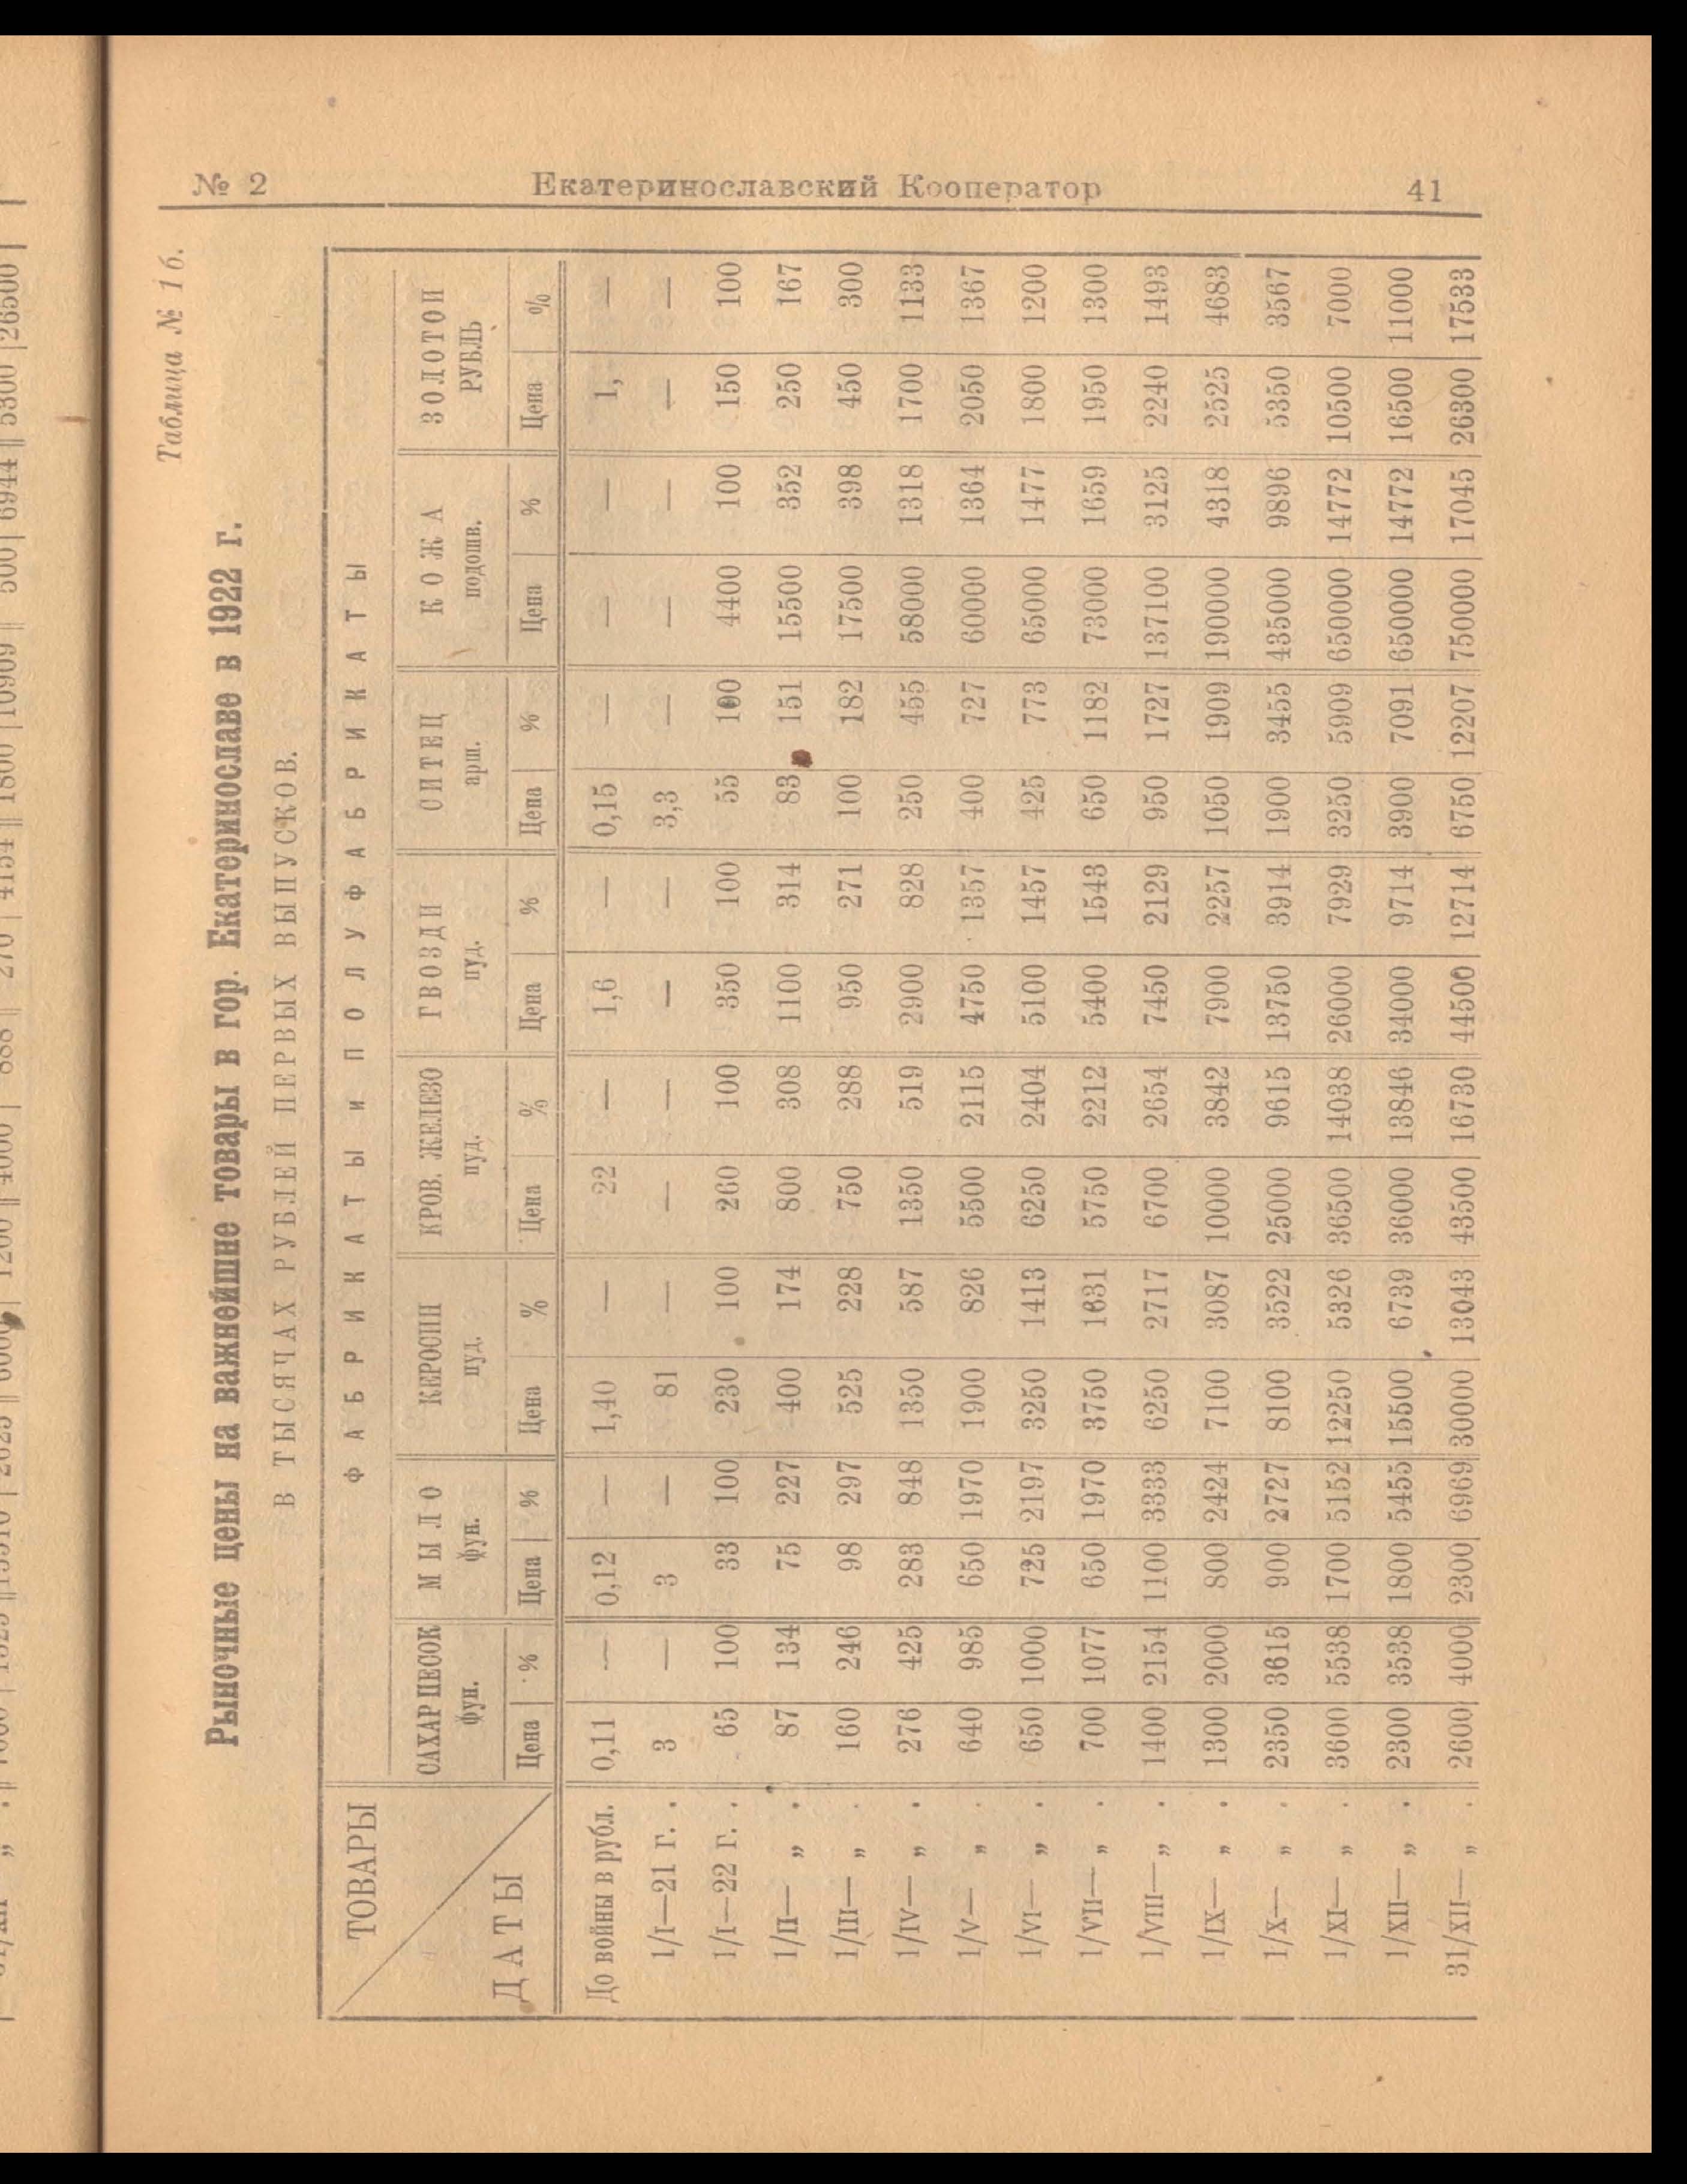 № 2 Екатеринославский Кооператор 41
Таблица № 1 б.
Рыночные цены на важнейшие товары в гор. Екатеринославе в 1922 г.
В ТЫСЯЧАХ РУБЛЕЙ ПЕРВЫХ ВЫПУСКОВ.
ТОВАРЫ ФАБРИКАТЫ И ПОЛУФАБРИКАТЫ
САХАР ПЕСОК МЫЛО КЕРОСИН КРОВ. ЖЕЛЕЗО ГВОЗДИ СИТЕЦ КОЖА ЗОЛОТОЙ
фун. фун. пуд. пуд. пуд. арш. подошв. РУБЛЬ
ДАТЫ Цена % Цена % Цена % Цена % Цена % Цена % Цена % Цена %
До войны в рубл. 0,11 — 0,12 — 1,40 — 22 — 1,6 — 0,15 — — — 1, —
1/I—21 г. . 3 — 3 — 81 — — — — — 3,3 — — — — —
1/I—22 г. . 65 100 33 100 230 100 260 100 350 100 55 100 4400 100 150 100
1/II— „ . 87 134 75 227 400 174 800 308 1100 314 83 151 15500 352 250 167
1/III— „ . 160 246 98 297 525 228 750 288 950 271 100 182 17500 398 450 300
1/IV— „ . 276 425 283 848 1350 587 1350 519 2900 828 250 455 58000 1318 1700 1133
1/V— „ . 640 985 650 1970 1900 826 5500 2115 4750 1357 400 727 60000 1364 2050 1367
1/VI— „ . 650 1000 725 2197 3250 1413 6250 2404 5100 1457 425 773 65000 1477 1800 1200
1/VII— „ . 700 1077 650 1970 3750 1631 5750 2212 5400 1543 650 1182 73000 1659 1950 1300
1/VIII— „ . 1400 2154 1100 3333 6250 2717 6700 2654 7450 2129 950 1727 137100 3125 2240 1493
1/IX— „ . 1300 2000 800 2424 7100 3087 10000 3842 7900 2257 1050 1909 190000 4318 2525 4683
1/X— „ . 2350 3615 900 2727 8100 3522 25000 9615 13750 3914 1900 3455 435000 9896 5350 3567
1/XI— „ . 3600 5538 1700 5152 12250 5326 36500 14038 26000 7929 3250 5909 650000 14772 10500 7000
1/XII— „ . 2300 3538 1800 5455 15500 6739 36000 13846 34000 9714 3900 7091 650000 14772 16500 11000
31/XII— „ . 2600 4000 2300 6969 30000 13043 43500 16730 44500 12714 6750 12207 750000 17045 26300 17533